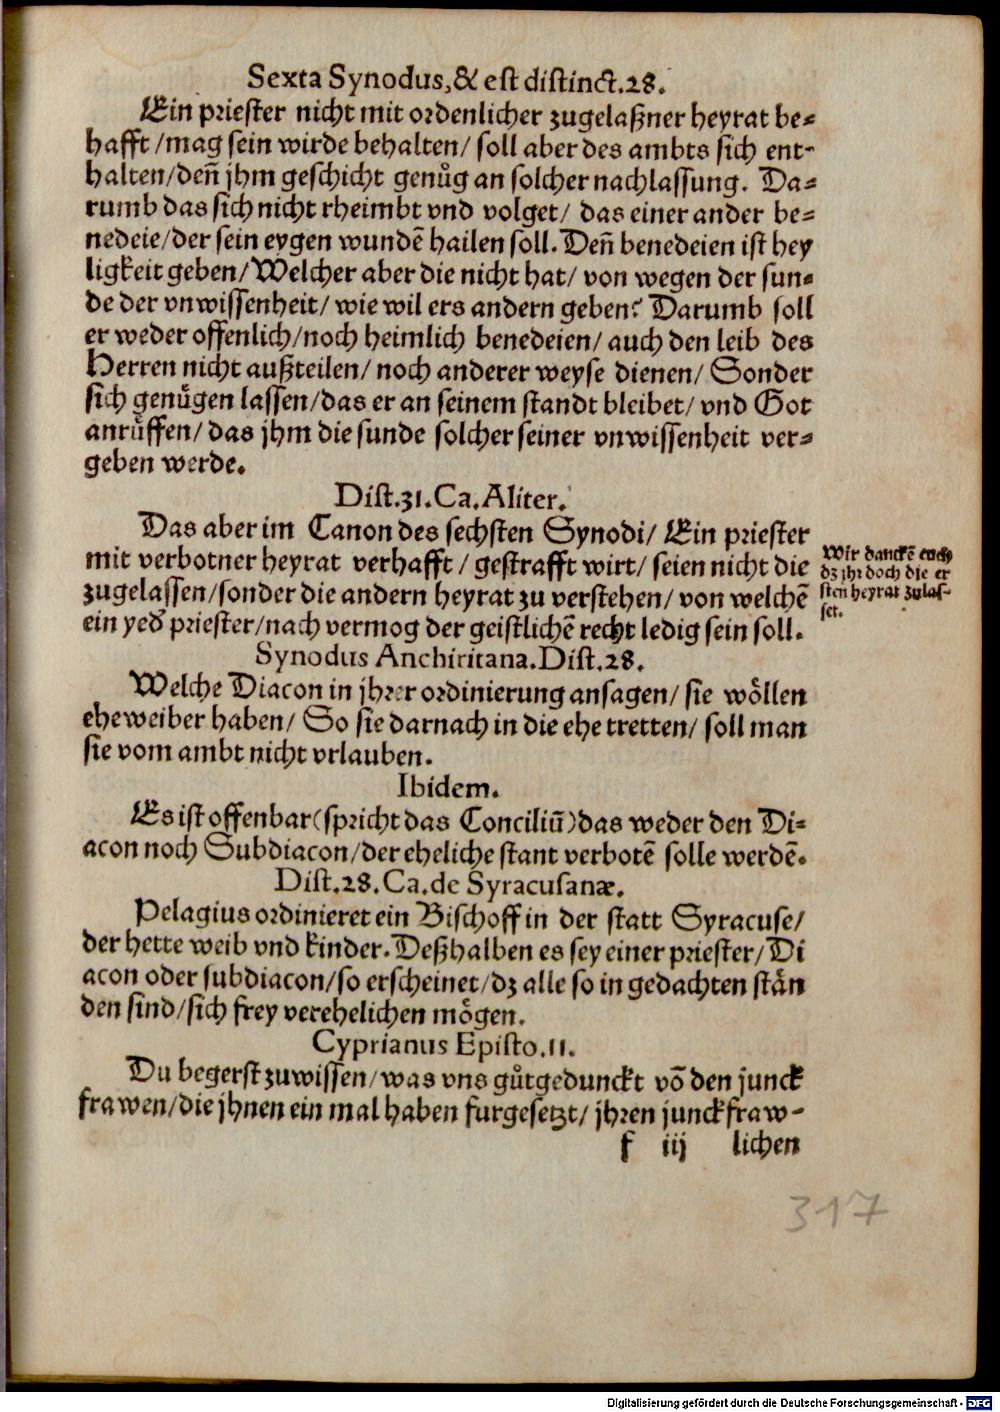 Sexta Synodus, & est distinct.28.
Ein priester nicht mit ordenlicher zugelaßner heyrat be⸗
hafft/mag sein wirde behalten/ soll aber des ambts sich ent⸗
halten/deñ jhm geschicht genůg an solcher nachlassung. Da⸗
rumb das sich nicht rheimbt vnd volget/ das einer ander be⸗
nedeie/der sein eygen wundē hailen soll. Deñ benedeien ist hey
ligkeit geben/Welcher aber die nicht hat/ von wegen der sun⸗
de der vnwissenheit/ wie wil ers andern geben? Darumb soll
er weder offenlich/noch heimlich benedeien/ auch den leib des
Herren nicht außteilen/ noch anderer weyse dienen/ Sonder
sich genuͤgen lassen/das er an seinem standt bleibet/ vnd Got
anruͤffen/ das jhm die sunde solcher seiner vnwissenheit ver⸗
geben werde.
Dist.31.Ca.Aliter.
Das aber im Canon des sechsten Synodi/ Ein priester
mit verbotner heyrat verhafft/ gestrafft wirt/ seien nicht die
zugelassen/sonder die andern heyrat zu verstehen/ von welchē
ein yed' priester/nach vermog der geistlichē recht ledig sein soll.
Wir danckē euch
dz jhr doch die er
sten heyrat zulas⸗
set.
Synodus Anchiritana.Dist.28.
Welche Diacon in jhrer ordinierung ansagen/ sie woͤllen
eheweiber haben/ So sie darnach in die ehe tretten/ soll man
sie vom ambt nicht vrlauben.
Ibidem.
Es ist offenbar(spricht das Conciliū)das weder den Di⸗
acon noch Subdiacon/der eheliche stant verbotē solle werdē.
Dist.28.Ca.de Syracusanæ.
Pelagius ordinieret ein Bischoff in der statt Syracuse/
der hette weib vnd kinder. Deßhalben es sey einer priester/Di
acon oder subdiacon/so erscheinet/dz alle so in gedachten staͤn
den sind/sich frey verehelichen moͤgen.
Cyprianus Episto.11.
Du begerst zuwissen/was vns gůtgedunckt vō den junck
frawen/die jhnen ein mal haben furgesetzt/ jhren junckfraw⸗
f iij lichen
317
Digitalisierung gefördert durch die Deutsche Forschungsgemeinschaft - DFG